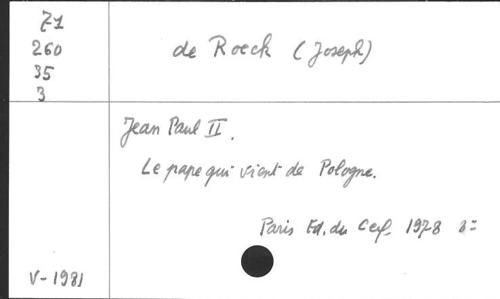 Z1
260
35
3
de Roeck (Joseph)
Jean Paul II.
Le pape qui vient de Pologne.
Paris Ed. du Cerf 1978 8=
V-1981